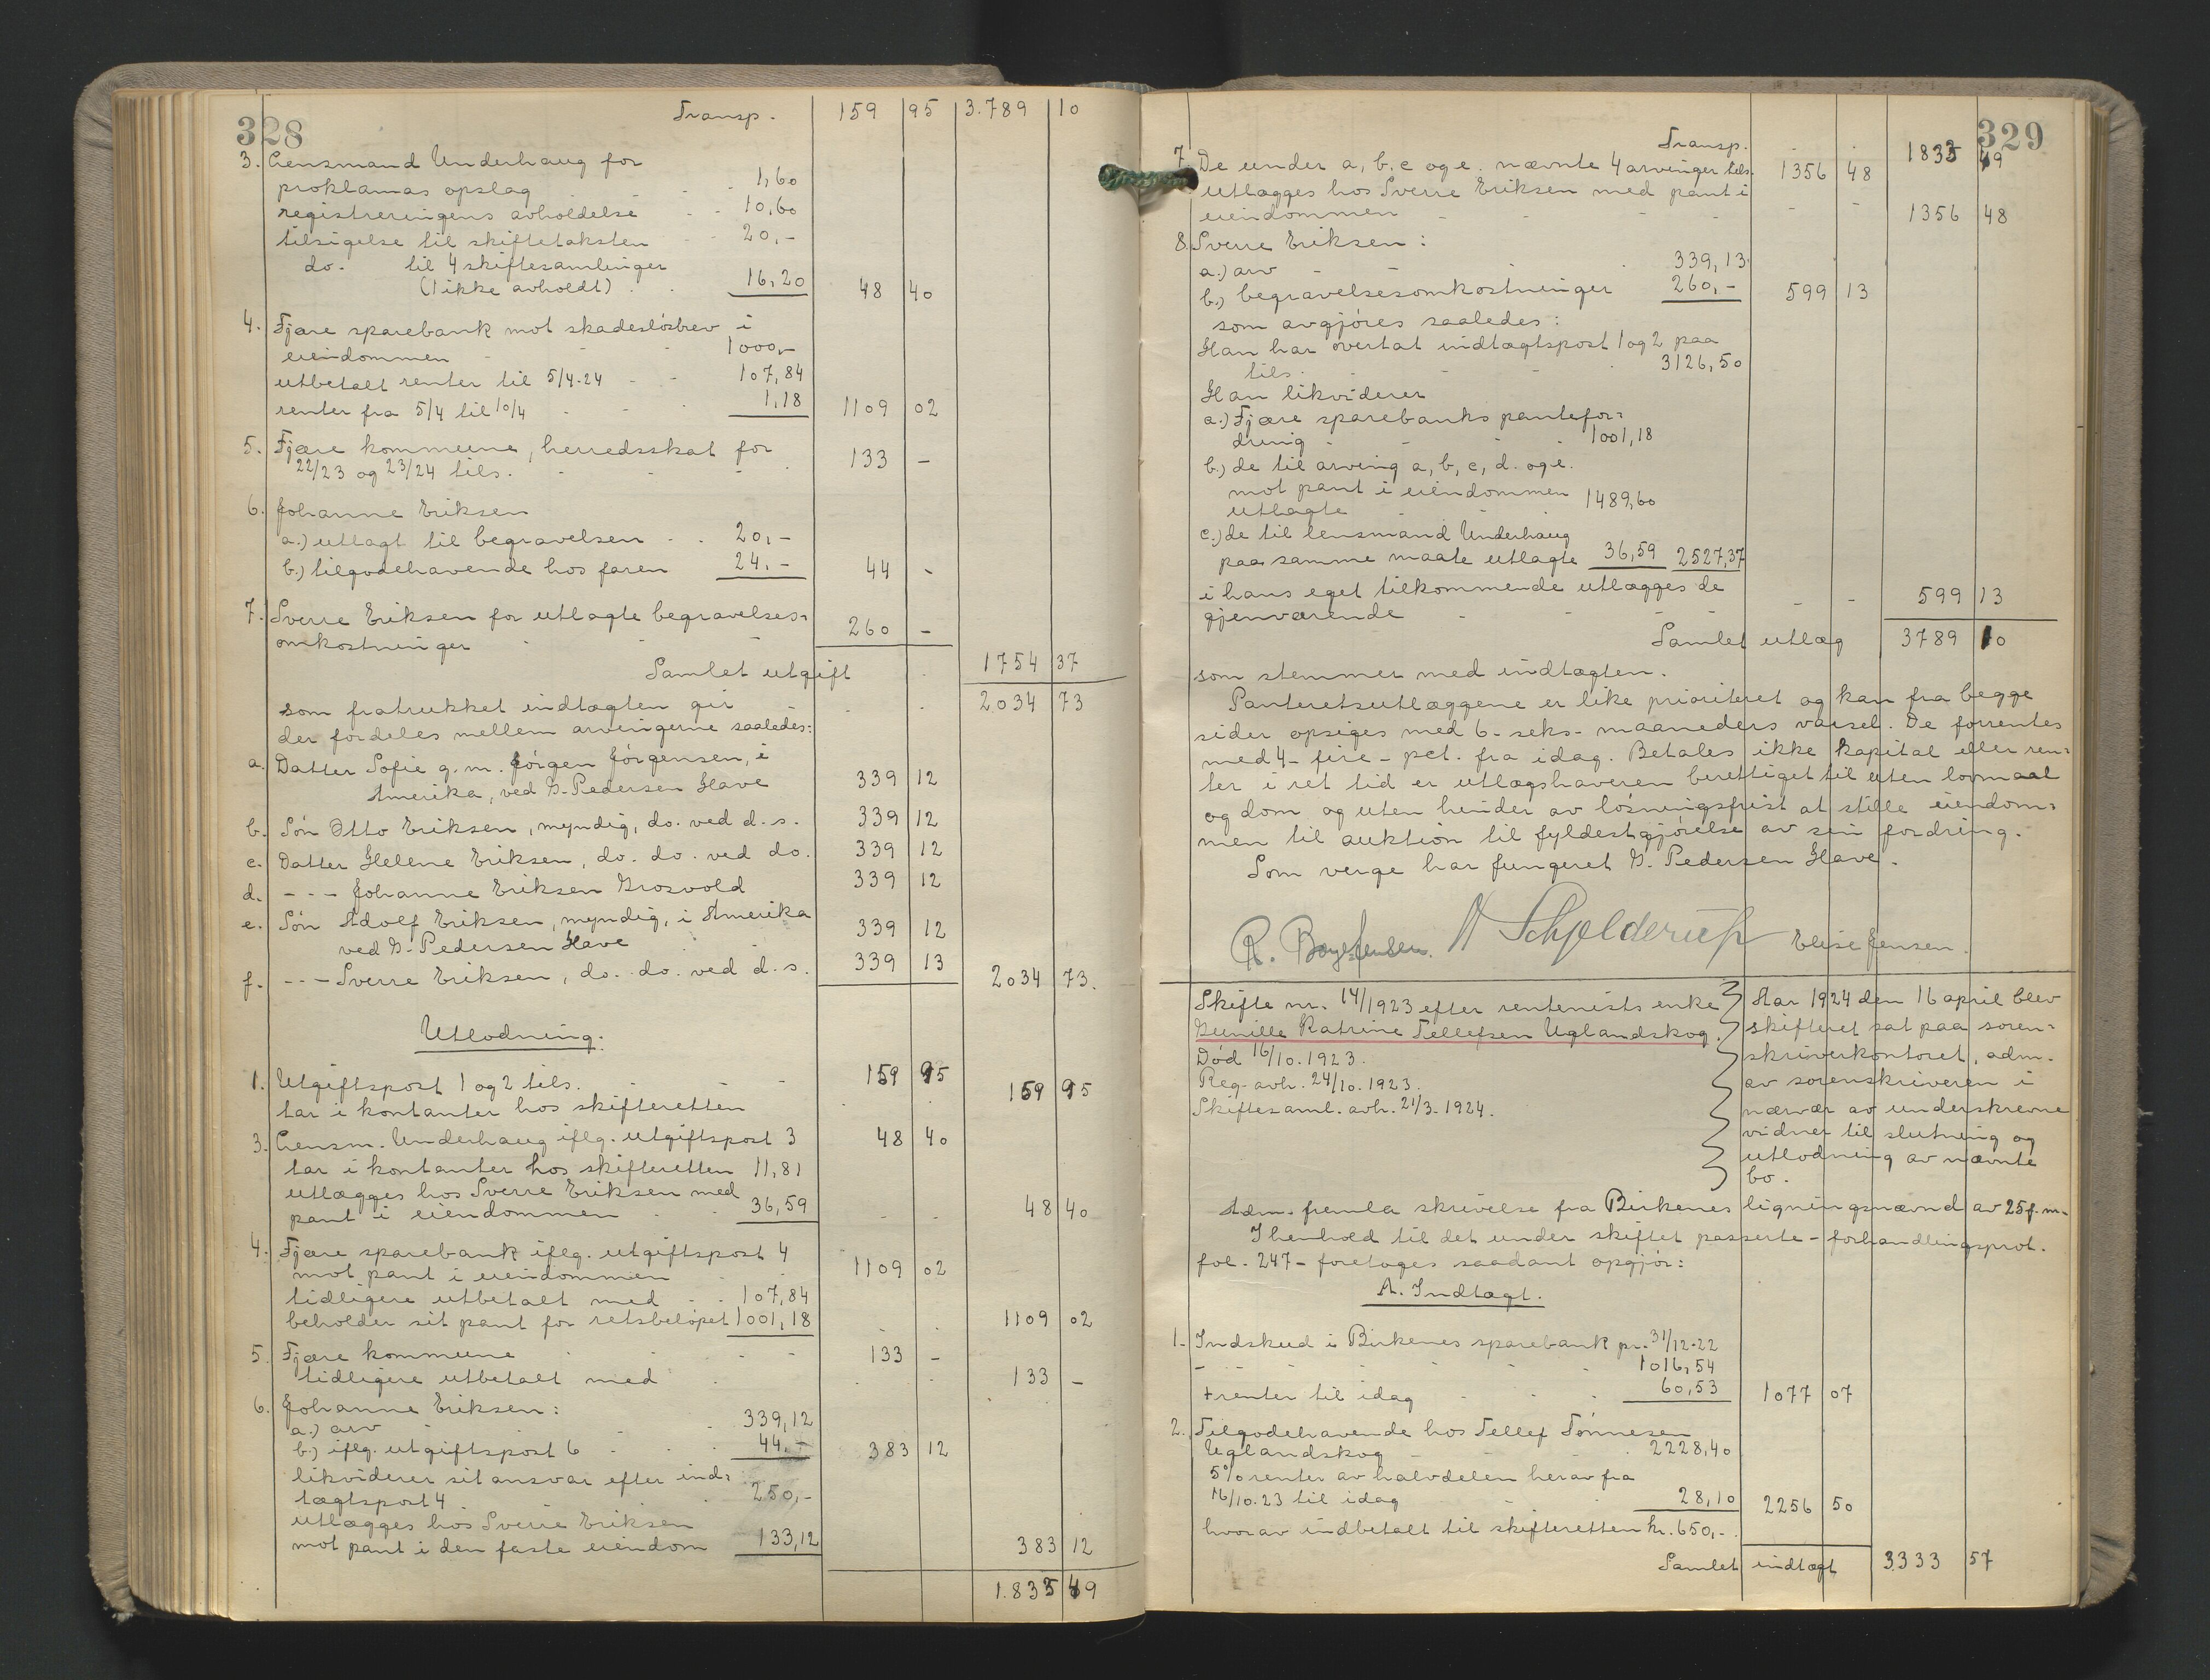 328
Transp. 159 95 3.789 10
3. Lensmand Underhaug for
proklamas opslag - - 1,60
registreringens avholdelse - - 10,60
tilsigelse til skiftetaksten - - 20,-
do. til 4 skiftesamlinger
(1 ikke avholdt) . . 16,20 48 40
4. Fjære sparebank mot skadesløsbrev i
eiendommen - - 1000,-
utbetalt renter til 5/4-24 - - 107,84
renter fra 5/4 til 10/4 - - 1,18 1109 02
5. Fjære kommune, herredsskat for
22/23 og 23/24 tils. - - - 133 -
6. Johanne Eriksen
a.) utlagt til begravelsen - . 20,-
b.) tilgodehavende hos faren 24.- 44 -
7. Sverre Eriksen for utlagte begravelses=
omkostninger - - 260 -
Samlet utgift . 1754 37
som fratrukket indtægten gir . . 2034 73
der fordeles mellem arvingerne saaledes:
a. Datter Sofie g.m. Jørgen Jørgensen, i
Amerika, ved G. Pedersen Have 339 12
b. Søn Otto Eriksen, myndig, do. ved d.s. 339 12
c. Datter Helene Eriksen, do. do. ved do. 339 12
d. - - - Johanne Eriksen Grosvold 339 12
e. Søn Adolf Eriksen, myndig, i Amerika
ved G. Pedersen Have 339 12
f. - - - Sverre Eriksen, do. do. ved d.s. 339 13 2034 73.
Utlodning.
1. Utgiftspost 1 og 2 tils. - - - 159 95
tar i kontanter hos skifteretten . . 159 95
3. Lensm. Underhaug iflg. utgiftspost 3 48 40
tar i kontanter hos skifteretten 11,81
utlægges hos Sverre Eriksen med
pant i eiendommen - - 36,59 - - 48 40
4. Fjære sparebank iflg. utgiftspost 4
mot pant i eiendommen . . 1109 02
tidligere utbetalt med - . 107,84
beholder sit pant for restbeløpet 1001,18 . . 1109 02
5. Fjære kommune . - - 133 -
tidligere utbetalt med . . . 133 -
6. Johanne Eriksen:
a.) arv - - 339,12
b.) iflg. utgiftspost 6 - . . 44.- 383 12
likviderer sit ansvar efter ind=
tægtspost 4 . . 250,-
utlægges hos Sverre Eriksen
mot pant i den faste eiendom 133,12 383 12
1.835 49
329
Transp. . . 1835 49
7. De under a, b, c og e. nævnte 4 arvinger tils. 1356 48
utlægges hos Sverre Eriksen med pant i
eiendommen - - - - - 1356 48
8. Sverre Eriksen:
a.) arv - - . 339,13.
b.) begravelsesomkostninger 260,- 599 13
som avgjøres saaledes:
Han har overtat indtægtspost 1 og 2 paa
tils. - - . 3126,50
Han likviderer
a.) Fjære sparebanks pantefor=
dring - - . 1001,18
b.) de til arving a, b, c, d. og e.
mot pant i eiendommen 1489,60
utlagte - -
c.) de til lensmand Underhaug
paa samme maate utlagte 36,59 2527,37
i hans eget tilkommende utlægges de
gjenværende - - - - 599 13
Samlet utlæg 3789 10
som stemmer med indtægten.
Panteretsutlæggene er like prioriteret og kan fra begge
sider opsiges med 6- seks- maaneders varsel. De forrentes
med 4- fire- pct. fra idag. Betales ikke kapital eller ren=
ter i ret tid er utlægshaveren berettiget til uten lovmaal
og dom og uten hinder av løsningsfrist at stille eiendom=
men til auktion til fyldestgjørelse av sin fordring.
Som verge har fungeret G. Pedersen Have.
R. Boye Jensen. Schjelderup Elise Jensen.
Skifte nr. 14/1923 efter rentenists enke
Gunille Katrine Tellefsen Uglandskog.
Død 16/10.1923.
Reg. avh. 24/10.1923.
Skiftesaml. avh. 21/3.1924.
Aar 1924 den 16 april blev
skifteret sat paa soren=
skriverkontoret, adm.
av sorenskriveren i
nærvær av underskrevne
vidner til slutning og
utlodning av nævnte
bo.
Adm. fremla skrivelse fra Birkenes ligningsnævnd av 25 f.m.
I henhold til det under skiftet passerte - forhandlingsprot.
fol. 247 - foretoges saadant opgjør:
A. Indtægt.
1. Indskud i Birkenes sparebank pr. 31/12-22
- - - - - - 1016,54
+ renter til idag - - . 60,53 1077 07
2. Tilgodehavende hos Tellef Tønnesen
Uglandskog - - - 2228,40
5% renter av halvdelen herav fra
16/10.23 til idag - - 28,10 2256 50
hvorav indbetalt til skifteretten kr. 650,-.
Samlet indtægt 3333 57